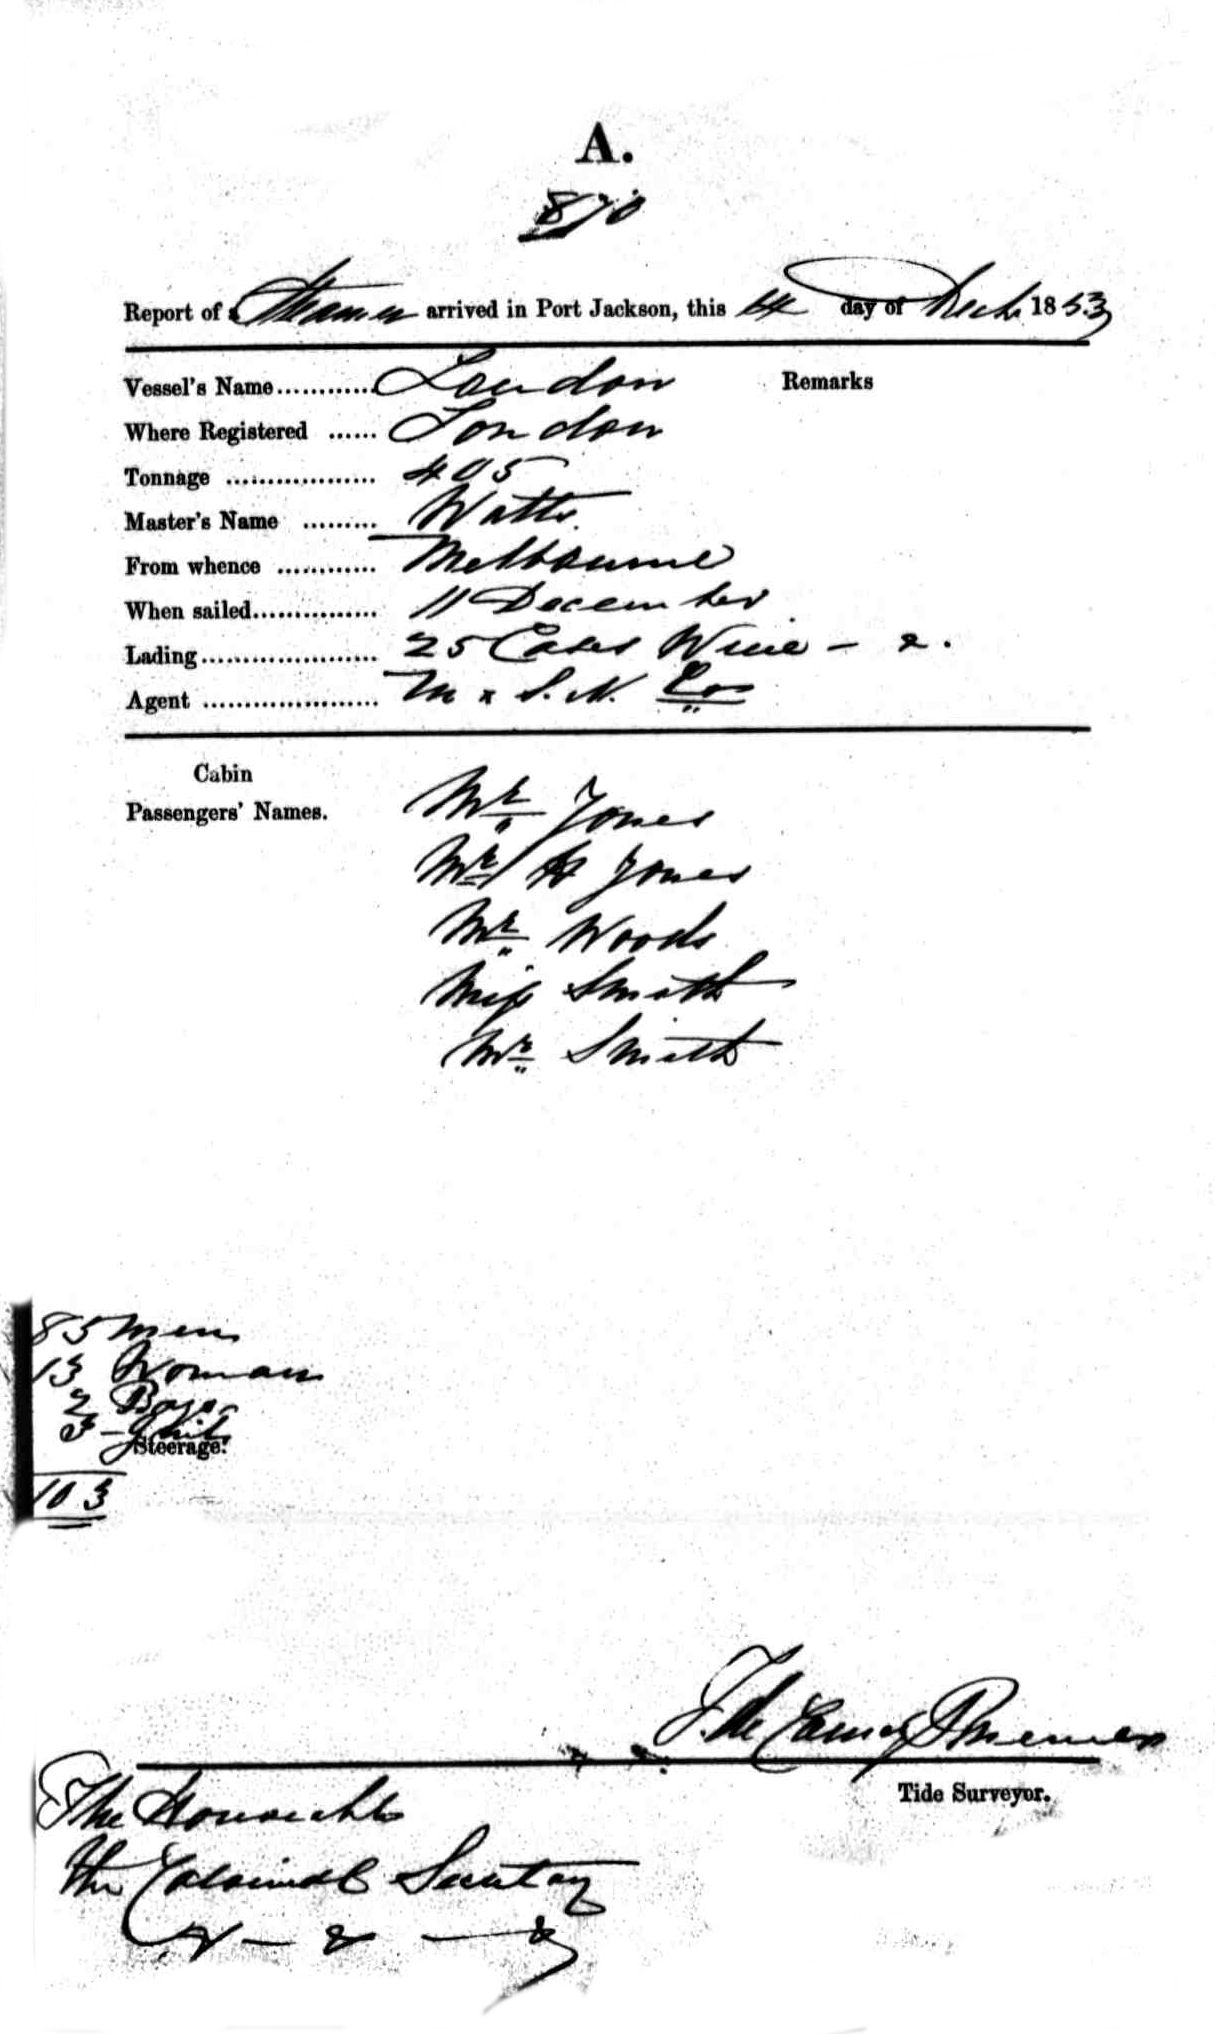 A.
870
Report of a Steamer arrived in Port Jackson, this 14 day of Dech. 1853
Vessel's Name............ London Remarks
Where Registered ...... London
Tonnage .................. 405
Master's Name ......... Watts
From whence ............ Melbourne
When sailed............... 11 December
Lading..................... 25 Cases Wine - &.
Agent ..................... M & S. N. Co
Cabin
Passengers' Names. Mr Jones
Mr H Jones
Mr Woods
Miss Smith
Mr Smith
85 Men
13 Woman
2 Boys
3 -
Steerage.
103
F. de
Tide Surveyor.
The Honorable
the Colonial Secretary
& - & - &